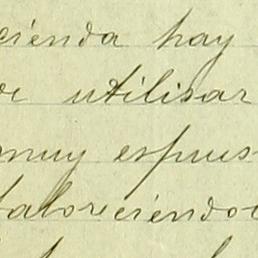 cienda hay
de utilisar
muy espues
taloreciendo